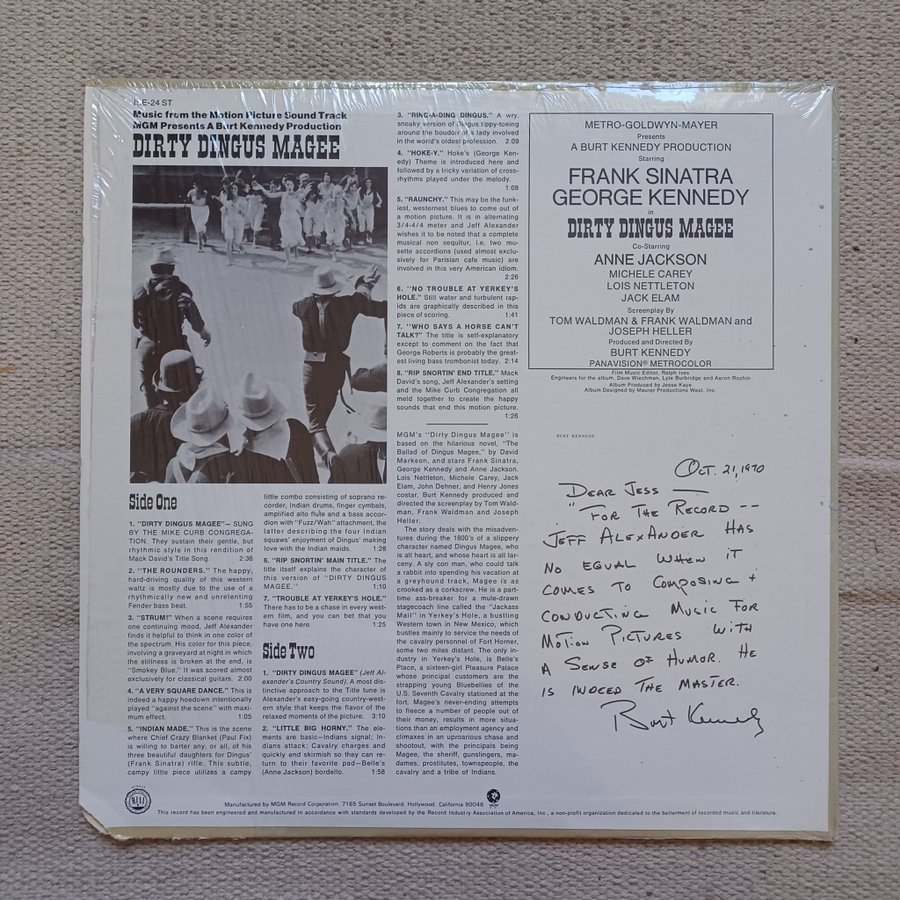 1SE-24 ST
Music from the Motion Picture Sound Track
MGM Presents A Burt Kennedy Production
DIRTY DINGUS MAGEE
Side One
1. "DIRTY DINGUS MAGEE"— SUNG
BY THE MIKE CURB CONGREGA-
TION. They sustain their gentle, but
rhythmic style in this rendition of
Mack David's Title Song. 2:36
2. "THE ROUNDERS." The happy,
hard-driving quality of this western
waltz is mostly due to the use of a
rhythmically new and unrelenting
Fender bass beat. 1:55
3. "STRUM!" When a scene requires
one continuing mood, Jeff Alexander
finds it helpful to think in one color of
the spectrum. His color for this piece,
involving a graveyard at night in which
the stillness is broken at the end, is
"Smokey Blue." It was scored almost
exclusively for classical guitars. 2:00
4. "A VERY SQUARE DANCE." This is
indeed a happy hoedown intentionally
played "against the scene" with maxi-
mum effect. 1:05
5. "INDIAN MADE." This is the scene
where Chief Crazy Blanket (Paul Fix)
is willing to barter any, or all, of his
three beautiful daughters for Dingus'
(Frank Sinatra) rifle. This subtle,
campy little piece utilizes a campy
little combo consisting of soprano re-
corder, Indian drums, finger cymbals,
amplified alto flute and a bass accor-
dion with "Fuzz/Wah" attachment, the
latter describing the four Indian
squaws' enjoyment of Dingus' making
love with the Indian maids. 1:28
6. "RIP SNORTIN' MAIN TITLE." The
title itself explains the character of
this version of "DIRTY DINGUS
MAGEE." 1:10
7. "TROUBLE AT YERKEY'S HOLE."
There has to be a chase in every west-
ern film, and you can bet that you
have one here. 1:25
Side Two
1. "DIRTY DINGUS MAGEE" (Jeff Al-
exander's Country Sound). A most dis-
tinctive approach to the Title tune is
Alexander's easy-going country-west-
ern style that keeps the flavor of the
relaxed moments of the picture. 3:10
2. "LITTLE BIG HORNY." The ele-
ments are basic—Indians signal; In-
dians attack; Cavalry charges and
quickly end skirmish so they can re-
turn to their favorite pad—Belle's
(Anne Jackson) bordello. 1:58
3. "RING-A-DING DINGUS." A wry,
sneaky version of Dingus tippy-toeing
around the boudoir of a lady involved
in the world's oldest profession. 2:09
4. "HOKE-Y." Hoke's (George Ken-
nedy) Theme is introduced here and
followed by a tricky variation of cross-
rhythms played under the melody.
1:08
5. "RAUNCHY." This may be the funk-
iest, westernest blues to come out of
a motion picture. It is in alternating
3/4-4/4 meter and Jeff Alexander
wishes it to be noted that a complete
musical non sequitur, i.e. two mu-
sette accordions (used almost exclu-
sively for Parisian cafe music) are
involved in this very American idiom.
2:26
6. "NO TROUBLE AT YERKEY'S
HOLE." Still water and turbulent rap-
ids are graphically described in this
piece of scoring. 1:41
7. "WHO SAYS A HORSE CAN'T
TALK?" The title is self-explanatory
except to comment on the fact that
George Roberts is probably the great-
est living bass trombonist today. 2:14
8. "RIP SNORTIN' END TITLE." Mack
David's song, Jeff Alexander's setting
and the Mike Curb Congregation all
meld together to create the happy
sounds that end this motion picture.
1:26
MGM's "Dirty Dingus Magee" is
based on the hilarious novel, "The
Ballad of Dingus Magee," by David
Markson, and stars Frank Sinatra,
George Kennedy and Anne Jackson.
Lois Nettleton, Michele Carey, Jack
Elam, John Dehner, and Henry Jones
costar. Burt Kennedy produced and
directed the screenplay by Tom Wald-
man, Frank Waldman and Joseph
Heller.
The story deals with the misadven-
tures during the 1800's of a slippery
character named Dingus Magee, who
is all heart, and whose heart is all lar-
ceny. A sly con man, who could talk
a rabbit into spending his vacation at
a greyhound track, Magee is as
crooked as a corkscrew. He is a part-
time ass-breaker for a mule-drawn
stagecoach line called the "Jackass
Mail" in Yerkey's Hole, a bustling
Western town in New Mexico, which
bustles mainly to service the needs of
the cavalry personnel of Fort Horner,
some two miles distant. The only in-
dustry in Yerkey's Hole, is Belle's
Place, a sixteen-girl Pleasure Palace
whose principal customers are the
strapping young Bluebellies of the
U.S. Seventh Cavalry stationed at the
fort. Magee's never-ending attempts
to fleece a number of people out of
their money, results in more situa-
tions than an employment agency and
climaxes in an uproarious chase and
shootout, with the principals being
Magee, the sheriff, gunslingers, ma-
dames, prostitutes, townspeople, the
cavalry and a tribe of Indians.
METRO-GOLDWYN-MAYER
Presents
A BURT KENNEDY PRODUCTION
Starring
FRANK SINATRA
GEORGE KENNEDY
in
DIRTY DINGUS MAGEE
Co-Starring
ANNE JACKSON
MICHELE CAREY
LOIS NETTLETON
JACK ELAM
Screenplay By
TOM WALDMAN & FRANK WALDMAN and
JOSEPH HELLER
Produced and Directed By
BURT KENNEDY
PANAVISION® METROCOLOR
Film Music Editor, Ralph Ives
Engineers for the album, Dave Wiechman, Lyle Burbridge and Aaron Rochin
Album Produced by Jesse Kaye
Album Designed by Maurer Productions West, Inc.
BURT KENNEDY
OCT. 21, 1970
DEAR JESS —
"FOR THE RECORD --
JEFF ALEXANDER HAS
NO EQUAL WHEN IT
COMES TO COMPOSING +
CONDUCTING MUSIC FOR
MOTION PICTURES WITH
A SENSE OF HUMOR. HE
IS INDEED THE MASTER.
Burt Kennedy
Manufactured by MGM Record Corporation, 7165 Sunset Boulevard, Hollywood, California 90046
This record has been engineered and manufactured in accordance with standards developed by the Record Industry Association of America, Inc., a non-profit organization dedicated to the betterment of recorded music and literature.